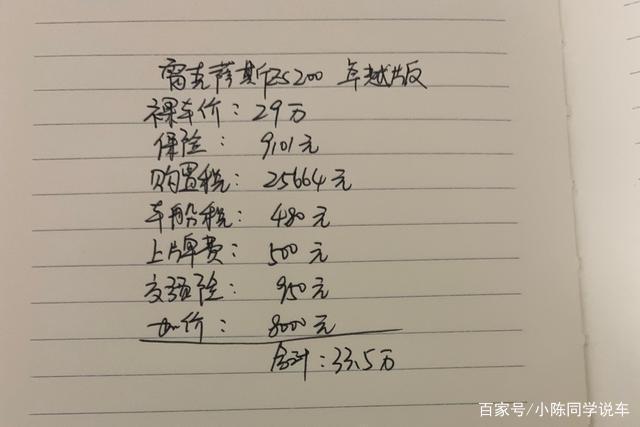 雷克萨斯ES200 卓越版
裸车价：29万
保险：9101元
购置税：25664元
车船税：480元
上牌费：500元
交强险：950元
加价：8000元
合计：33.5万
百家号/小陈同学说车